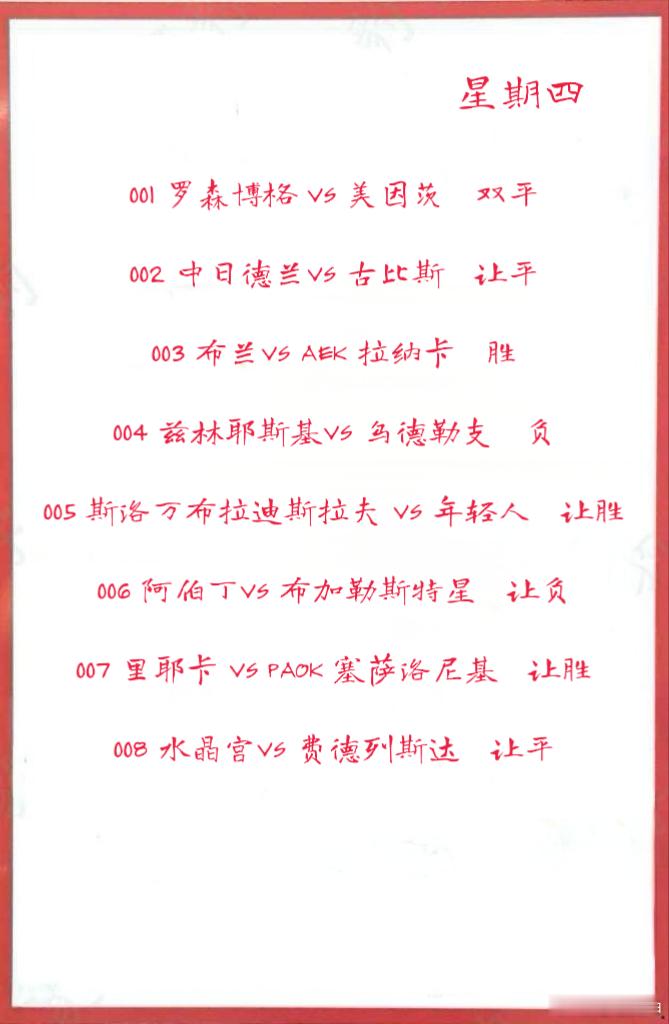 星期四
001 罗森博格 VS 美因茨 双平
002 中日德兰VS 古比斯 让平
003 布兰VS AEK 拉纳卡 胜
004 兹林耶斯基VS 乌德勒支 负
005 斯洛万布拉迪斯拉夫 VS 年轻人 让胜
006 阿伯丁VS 布加勒斯特星 让负
007 里耶卡 VS PAOK 塞萨洛尼基 让胜
008 水晶宫VS 费德列斯达 让平